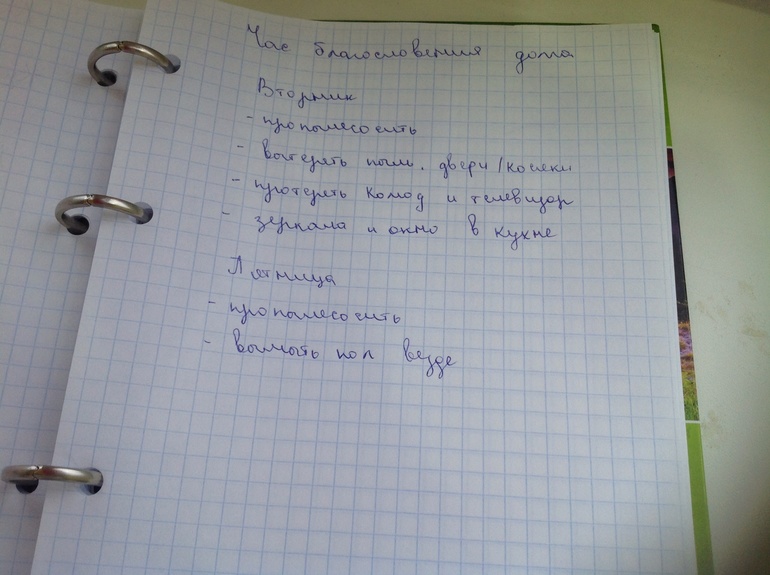 Час благословения дома
Вторник
- пропылесосить
- вытереть пыль. двери/косяки
- протереть комод и телевизор
- зеркала и окно в кухне
Пятница
- пропылесосить
- вымыть пол везде